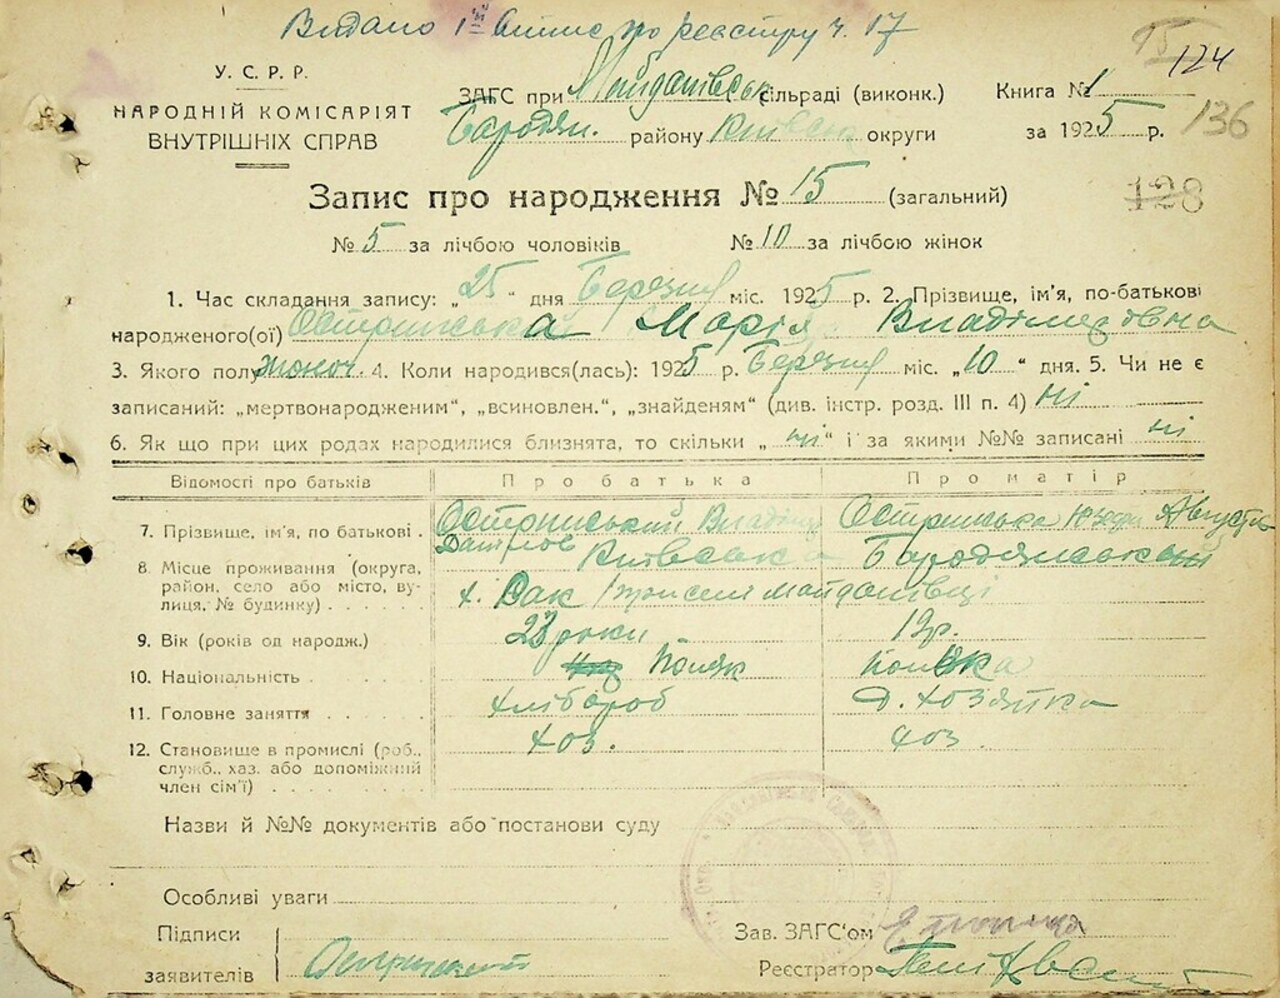 Видано 1ий Витис по реєстру ч. 17
15
124
У. С. Р. Р.
НАРОДНІЙ КОМІСАРІЯТ
ВНУТРІШНІХ СПРАВ
ЗАГС при Майданівськ сільраді (виконк.)
Бародян. району Київськ округи
Книга № 1
за 1925 р.
136
Запис про народження № 15 (загальний)
128
№ 5 за лічбою чоловіків № 10 за лічбою жінок
1. Час складання запису: „25" дня Березня міс. 1925 р. 2. Прізвище, ім'я, по-батькові
народженого(ої) Остринська Марія Владімировна
3. Якого полу жоноч. 4. Коли народився(лась): 1925 р. Березня міс. „10" дня. 5. Чи не є
записаний: „мертвонародженим", „всиновлен.", „знайденям" (див. інстр. розд. III п. 4) ні
6. Як що при цих родах народилися близнята, то скільки „ні" і за якими №№ записані ні
Відомості про батьків Про батька Про матір
7. Прізвище, ім'я, по батькові . Остринський Владімір Данілов Остринська Юзефа Августов
8. Місце проживання (округа, Київська Бародянський
район, село або місто, ву-
лиця, № будинку) . . . . . х. Дак при селі Майданівці
9. Вік (років од народж.) 23 роки 19 р.
10. Національність . . . . . Поляк полька
11. Головне заняття . . . . . хлібороб д. хозяйка
12. Становище в промислі (роб., хоз. хоз.
служб., хаз. або допоміжний
член сім'ї) . . . . . . . .
Назви й №№ документів або постанови суду
Особливі уваги
Підписи
заявителів Остринский
Зав. ЗАГС'ом
Реєстратор